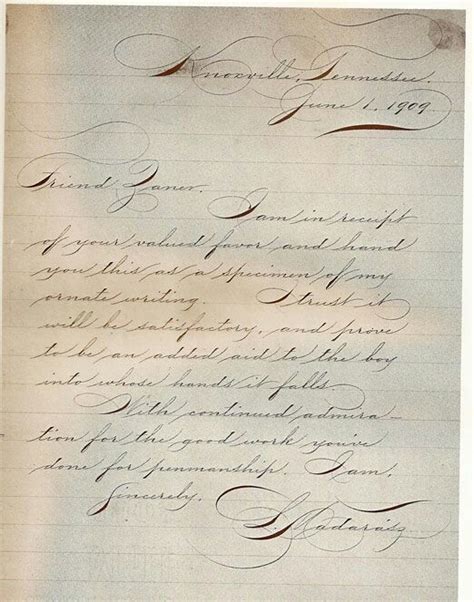 Knoxville, Tennessee.
June 1, 1909
Friend Zaner.
I am in receipt
of your valued favor and hand
you this as a specimen of my
ornate writing. I trust it
will be satisfactory, and prove
to be an added aid to the boy
into whose hands it falls
With continued admira-
tion for the good work you've
done for penmanship. I am,
Sincerely,
L. Madarász